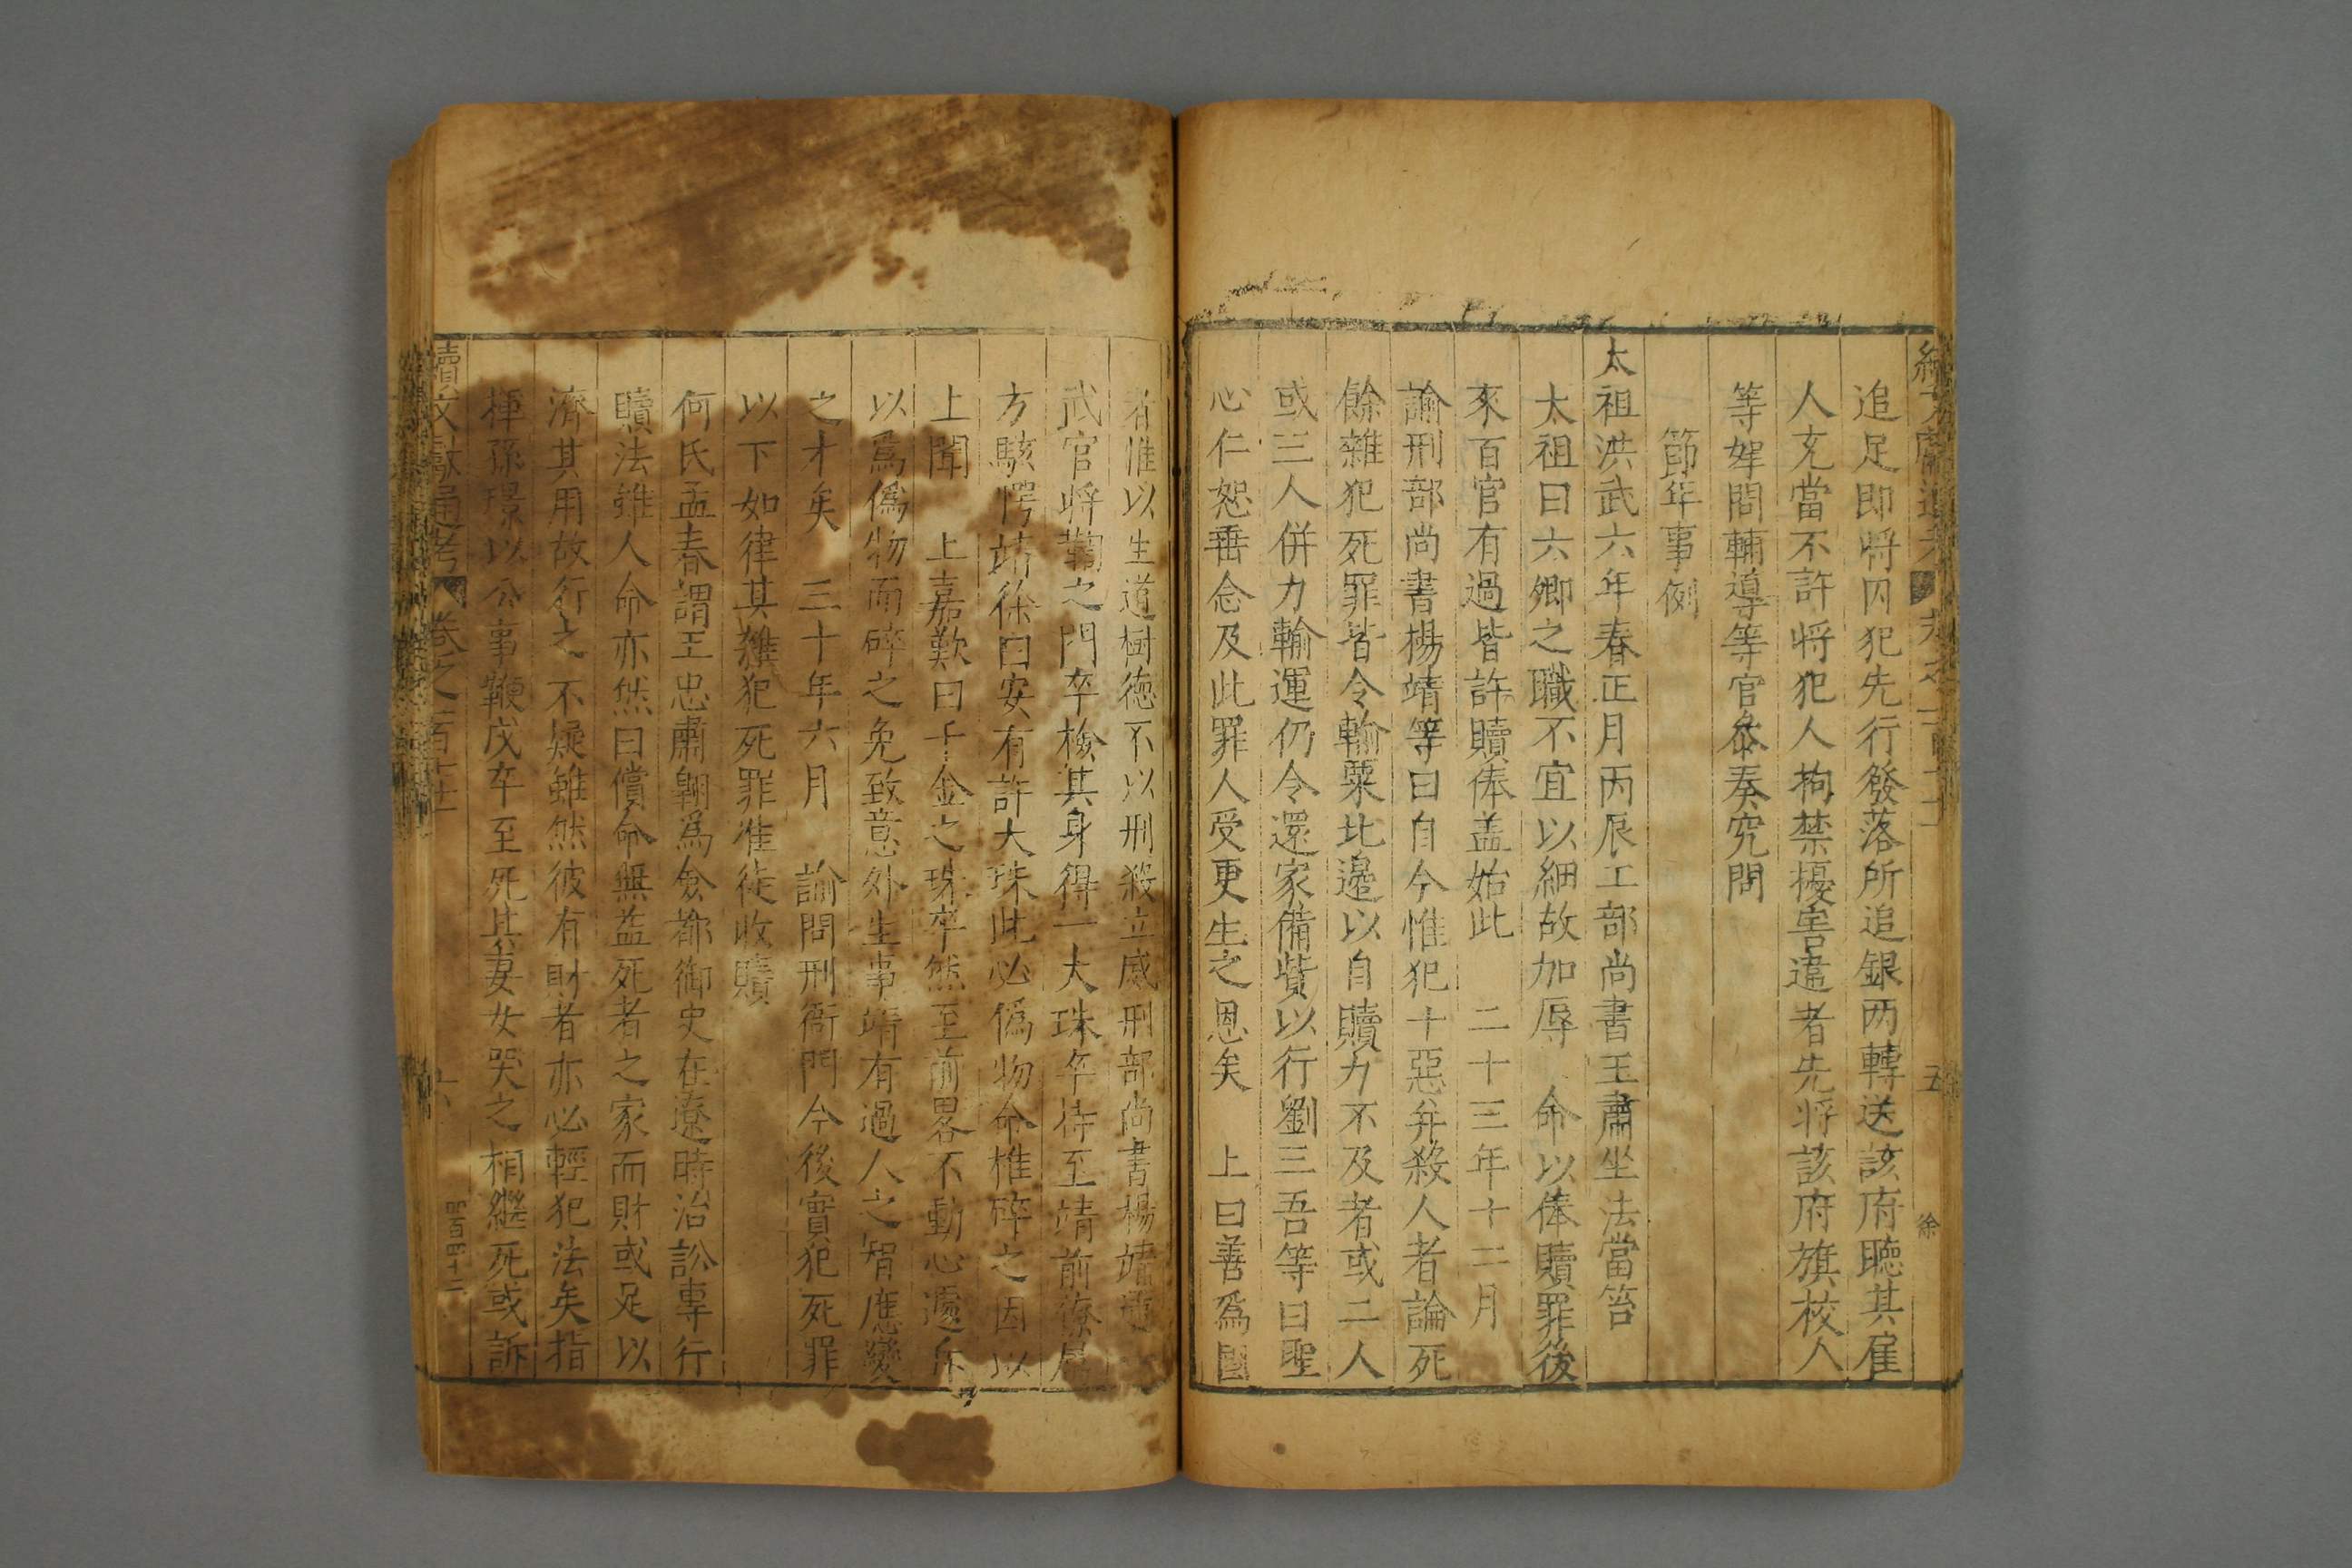 追足即將囚犯先行發落所追銀两轉送該府聽其雇
人充當不許將犯人拘禁擾害違者先將該府旗校人
等婢問輔導等官叅奏究問
節年事例
太祖洪武六年春正月丙辰工部尚書王肅坐法當笞
太祖曰六卿之職不宜以細故加辱 命以俸贖罪後
來百官有過皆許贖俸盖始此 二十三年十二月
諭刑部尚書楊靖等曰自今惟犯十惡并殺人者論死
餘雜犯死罪皆令輸粟北邊以自贖力不及者或二人
或三人併力輸運仍令還家備貲以行劉三吾等曰聖
心仁恕垂念及此罪人受更生之恩矣 上曰善爲國
者惟以生道樹德不以刑殺立威刑部尚書楊靖
武官將鞫之門卒檢其身得一大珠卒持至靖前僚屬
方駭愕靖徐曰安有許大珠此必僞物命椎碎之因以
上聞 上嘉歎曰千金之珠卒然至前畧不動心遽斥
以爲僞物而碎之免致意外生事靖有過人之智應變
之才矣 三十年六月 諭問刑衙門今後實犯死罪
以下如律其雜犯死罪准徒收贖
何氏孟春謂王忠肅翱爲僉都御史在遼時治訟專行
贖法雖人命亦然曰償命無益死者之家而財或足以
濟其用故行之不疑雖然彼有財者亦必輕犯法矣指
揮孫璟以公事鞭戍卒至死其妻女哭之相繼死或訴
續文獻通考 卷之一百
五
徐
六